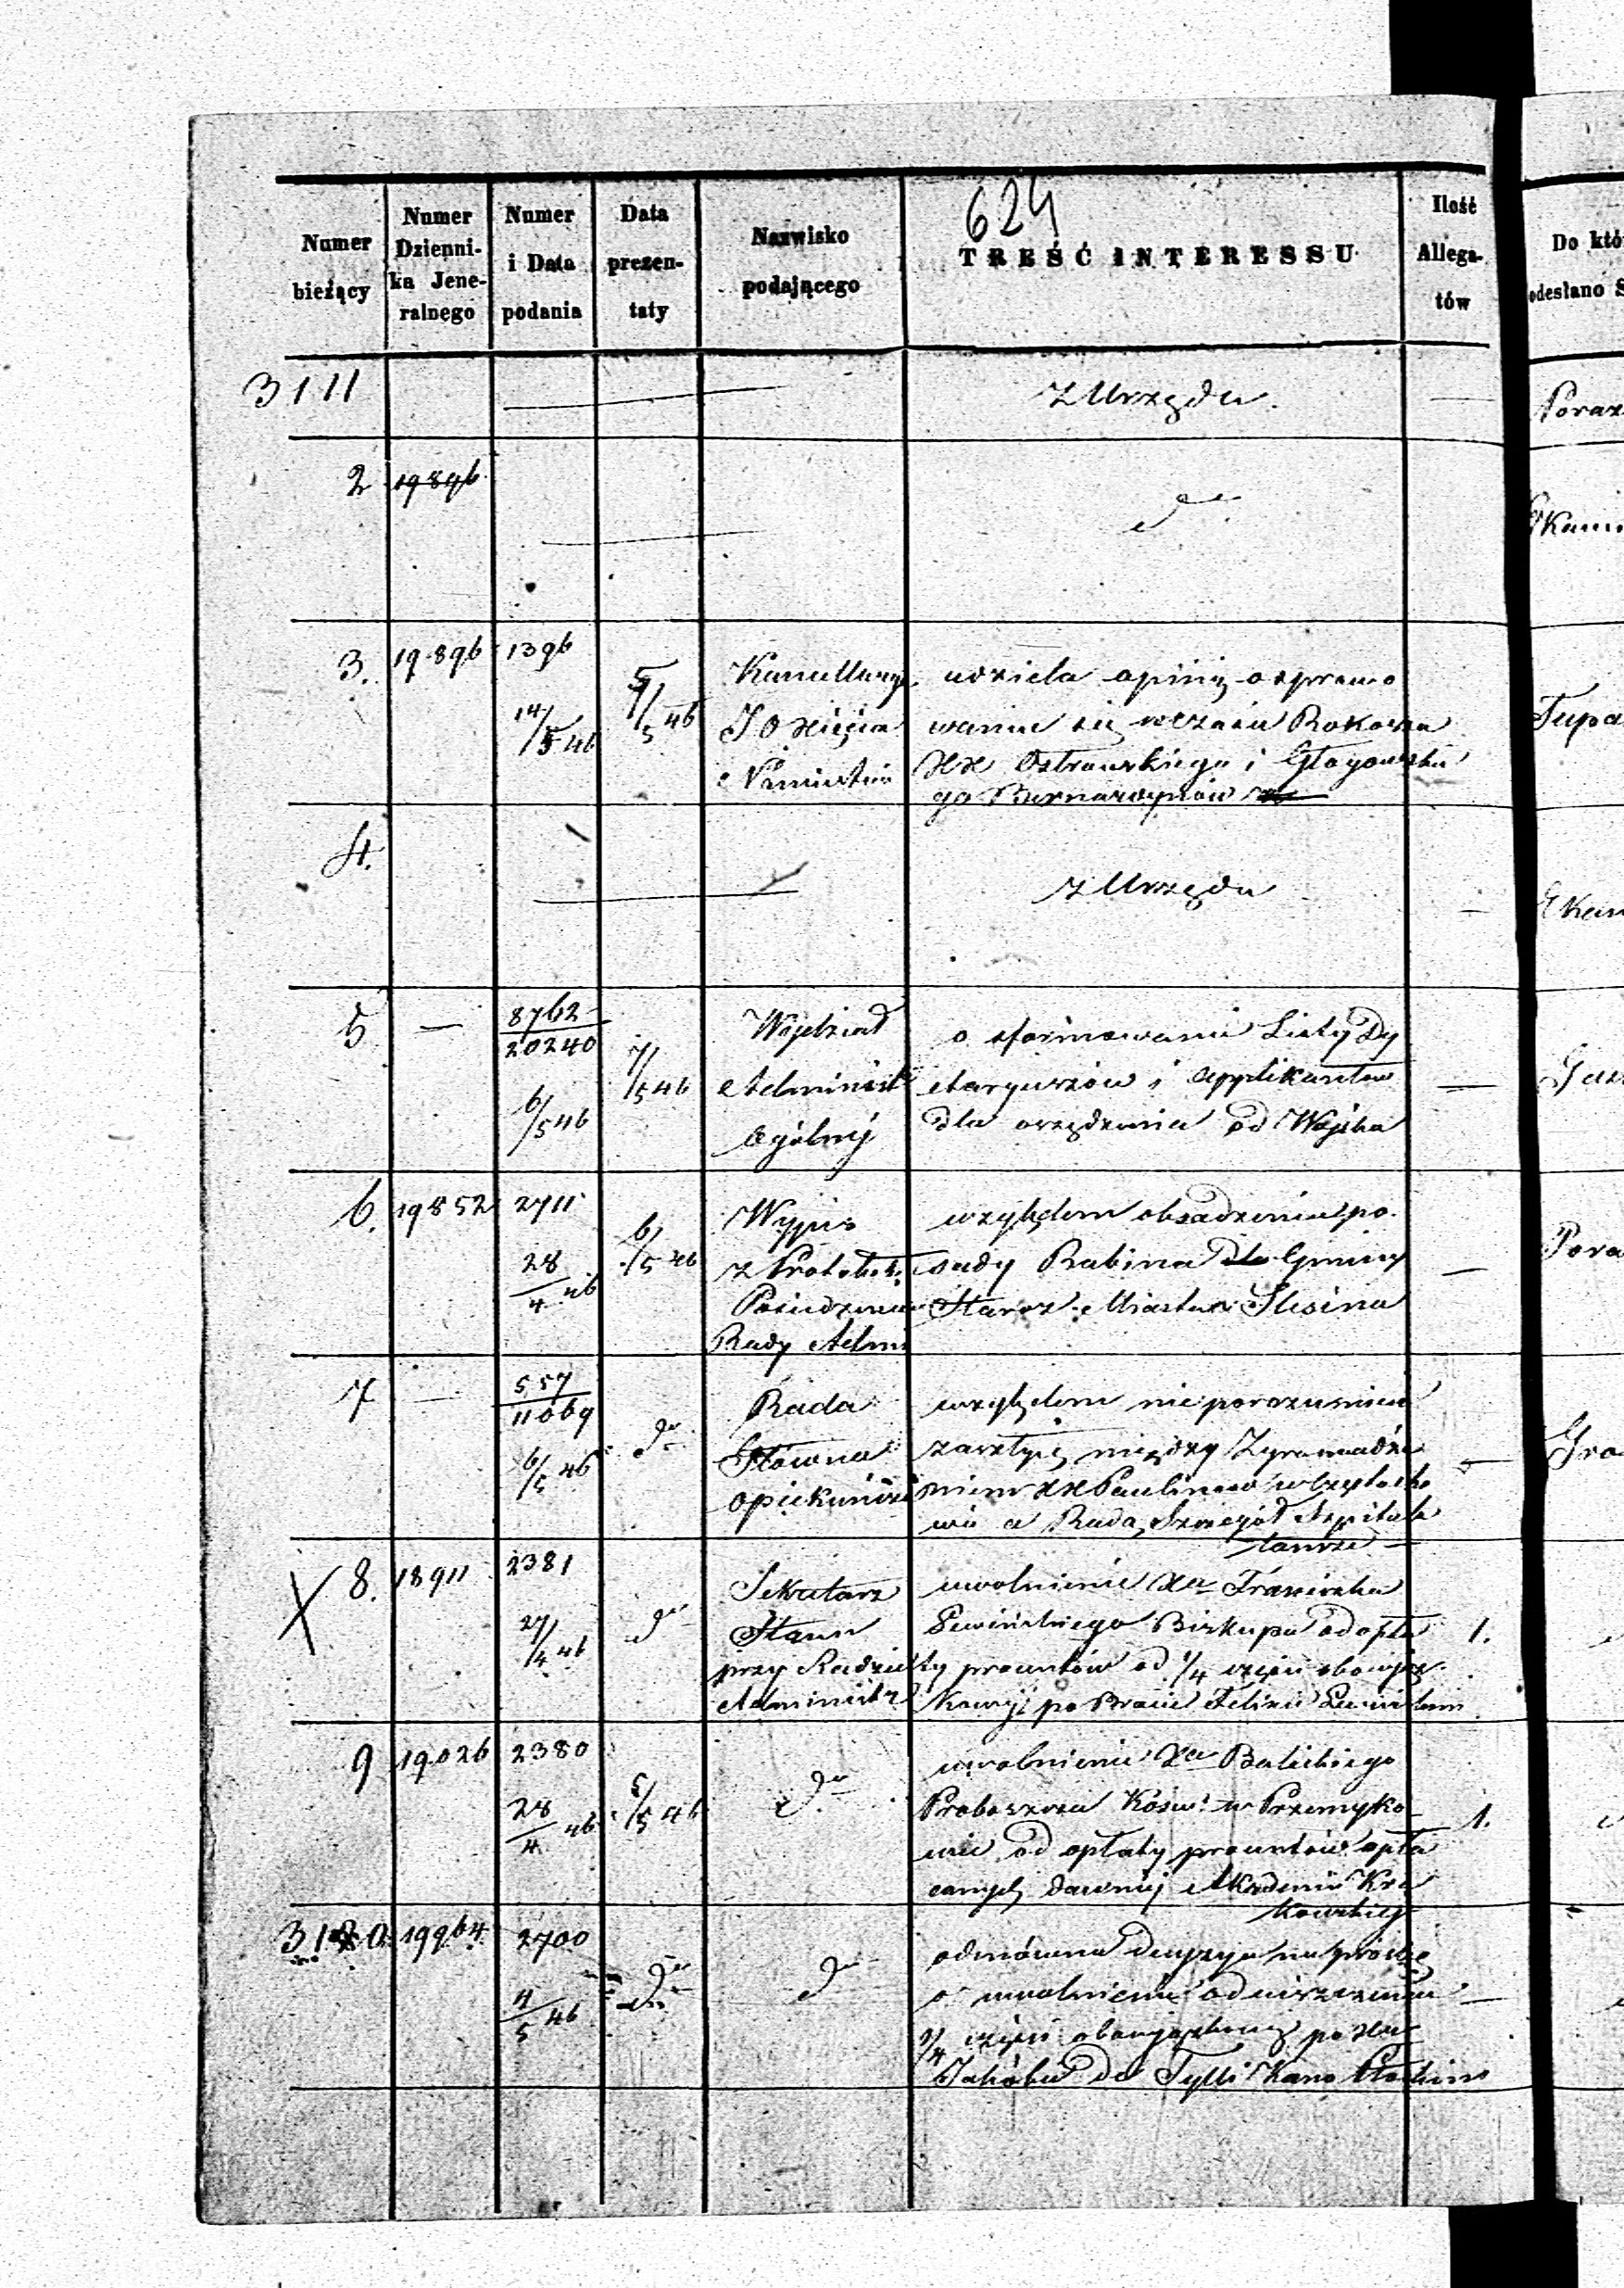 624
Numer bieżący
Numer Dzienni-ka Jene-ralnego
Numer i Data podania
Data prezen-taty
Nazwisko podającego
TREŚĆ INTERESSU
Ilość Allega-tów
Do któ
odesłano S
3111
z Urzędu
2 19896
do
3. 19896 1396
14/5 46
5/5 46
Kancellarya
J O Xięcia
Namiestnik
udziela opinią o sprawo
waniu się w czasie Rokoszu
XX Ostrowskiego i Głogowskie
go Bernardynów
4.
z Urzędu
5 — 8762
20240
6/5 46
7/5 46
Wydział
Administr
Ogólny
o sformowanie Listy Dy
etaryuszów i Applikantów
dla urządzenia od Wojska
6. 19852 2711
28/4 46
6/5 46
Wypis
z Protokołu
Posiedzenia
Rady Admi
względem obsadzenia po
sady Rabina dla Gminy
Staroz. Miasta Slesina
7 — 557
11069
6/5 46
do
Rada
Główna
Opiekuńcza
względem nieporozumień
zaszłych między Zgromadze
niem XX Paulinów w Częstocho
wie a Radą Szczegół Szpitala
tamże
X 8. 18911 2381
27/4 46
do
Sekretarz
Stanu
przy Radzie
Administr
uwolnienie Xa Franciszka
Lewińskiego Biskupa od opła
ty procentów od 1/4 części obowiąz
kowej po Bracie Felixie Lewińskim
1.
9 19026 2380
28/4 46
5/5 46
do
uwolnienie Xa Balickiego
Proboszcza Kośc. w Przemyko
wie od opłaty procentów opła
canych dawniej Akademii Kra
kowskiej
1.
3120 19964 2700
4/5 46
do
do
odmówna decyzya na prośbę
o uwolnienie od uiszczenia
1/4 części obowiązkowej po Xu
Jakóbie de Tylli Kano